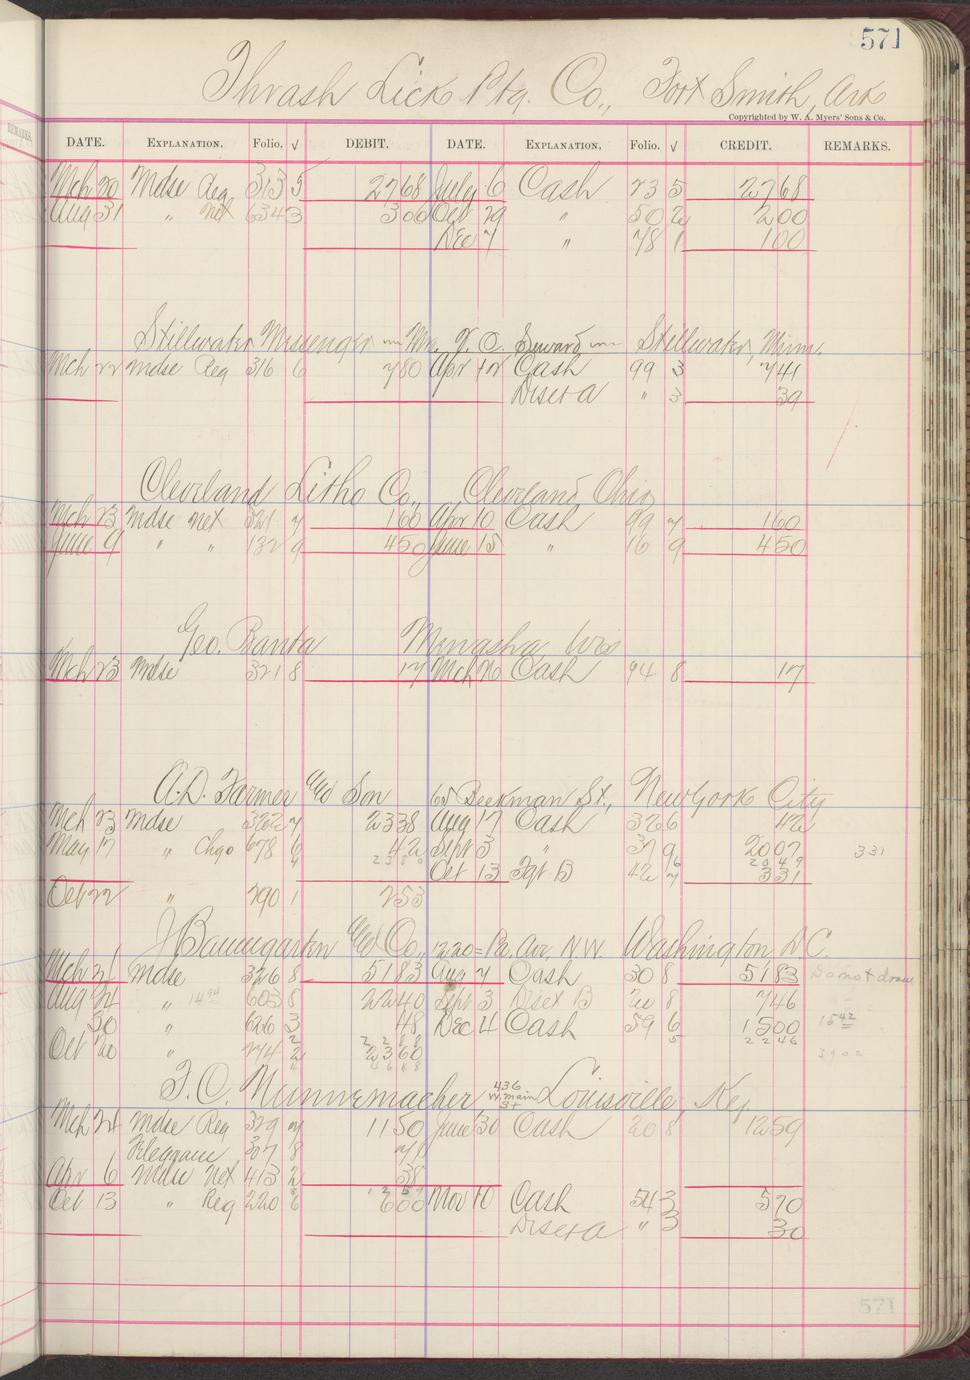 571
Thrash Lick Ptg. Co., Fort Smith, Ark
Copyrighted by W. A. Myers' Sons & Co.
DATE. EXPLANATION. Folio. √ DEBIT. DATE. EXPLANATION. Folio. √ CREDIT. REMARKS.
Mch 20 Mdse Reg 313 5 2768 July 6 Cash 23 5 2768
Aug 31 " net 634 3 300 Oct 29 " 50 2 200
Dec 7 " 78 1 100
Stillwater Messenger Stillwater, Minn.
Mch 22 Mdse Reg 316 6 780 Apr Cash 99 3 741
Disct a " 3 39
Cleveland Litho Co., Cleveland Ohio
Mch 23 Mdse net 321 7 160 Apr 10 Cash 99 7 160
June 9 " " 132 9 450 June 15 " 16 9 450
Geo. Banta Menasha Wis
Mch 23 Mdse 321 8 17 Mch 26 Cash 94 8 17
A.D. Farmer and Son 65 Beekman St., New York City
Mch 23 Mdse 322 7 2338 Aug 17 Cash 32 6 42
May 17 " Chgo 678 6 42 Sept 3 " 37 9 2007 331
4 2380 Oct 13 Fgt B 42 7 331
Oct 22 " 290 1 253
J Baumgarten and Co., 1220 Pa. Ave. N.W. Washington, D.C.
Mch 24 Mdse 326 8 5183 Aug 7 Cash 30 8 5183 Do not draw
Aug 24 " 603 8 2240 Sept 3 Disct B 20 8 746
30 " 626 3 48 Dec 4 Cash 59 6 1500 1542
2288 5 2246
Oct 20 " 274 2 2360 3902
4648
F.C. Nunnemacher 436 W. Main St Louisville, Ky.
Mch 24 Mdse Reg 329 7 1150 June 30 Cash 20 8 1259
Telegram 307 8
Apr 6 Mdse Net 413 2 38
Oct 13 " Reg 220 6 600 Nov 10 Cash 54 3 570
Disct a " 3 30
571